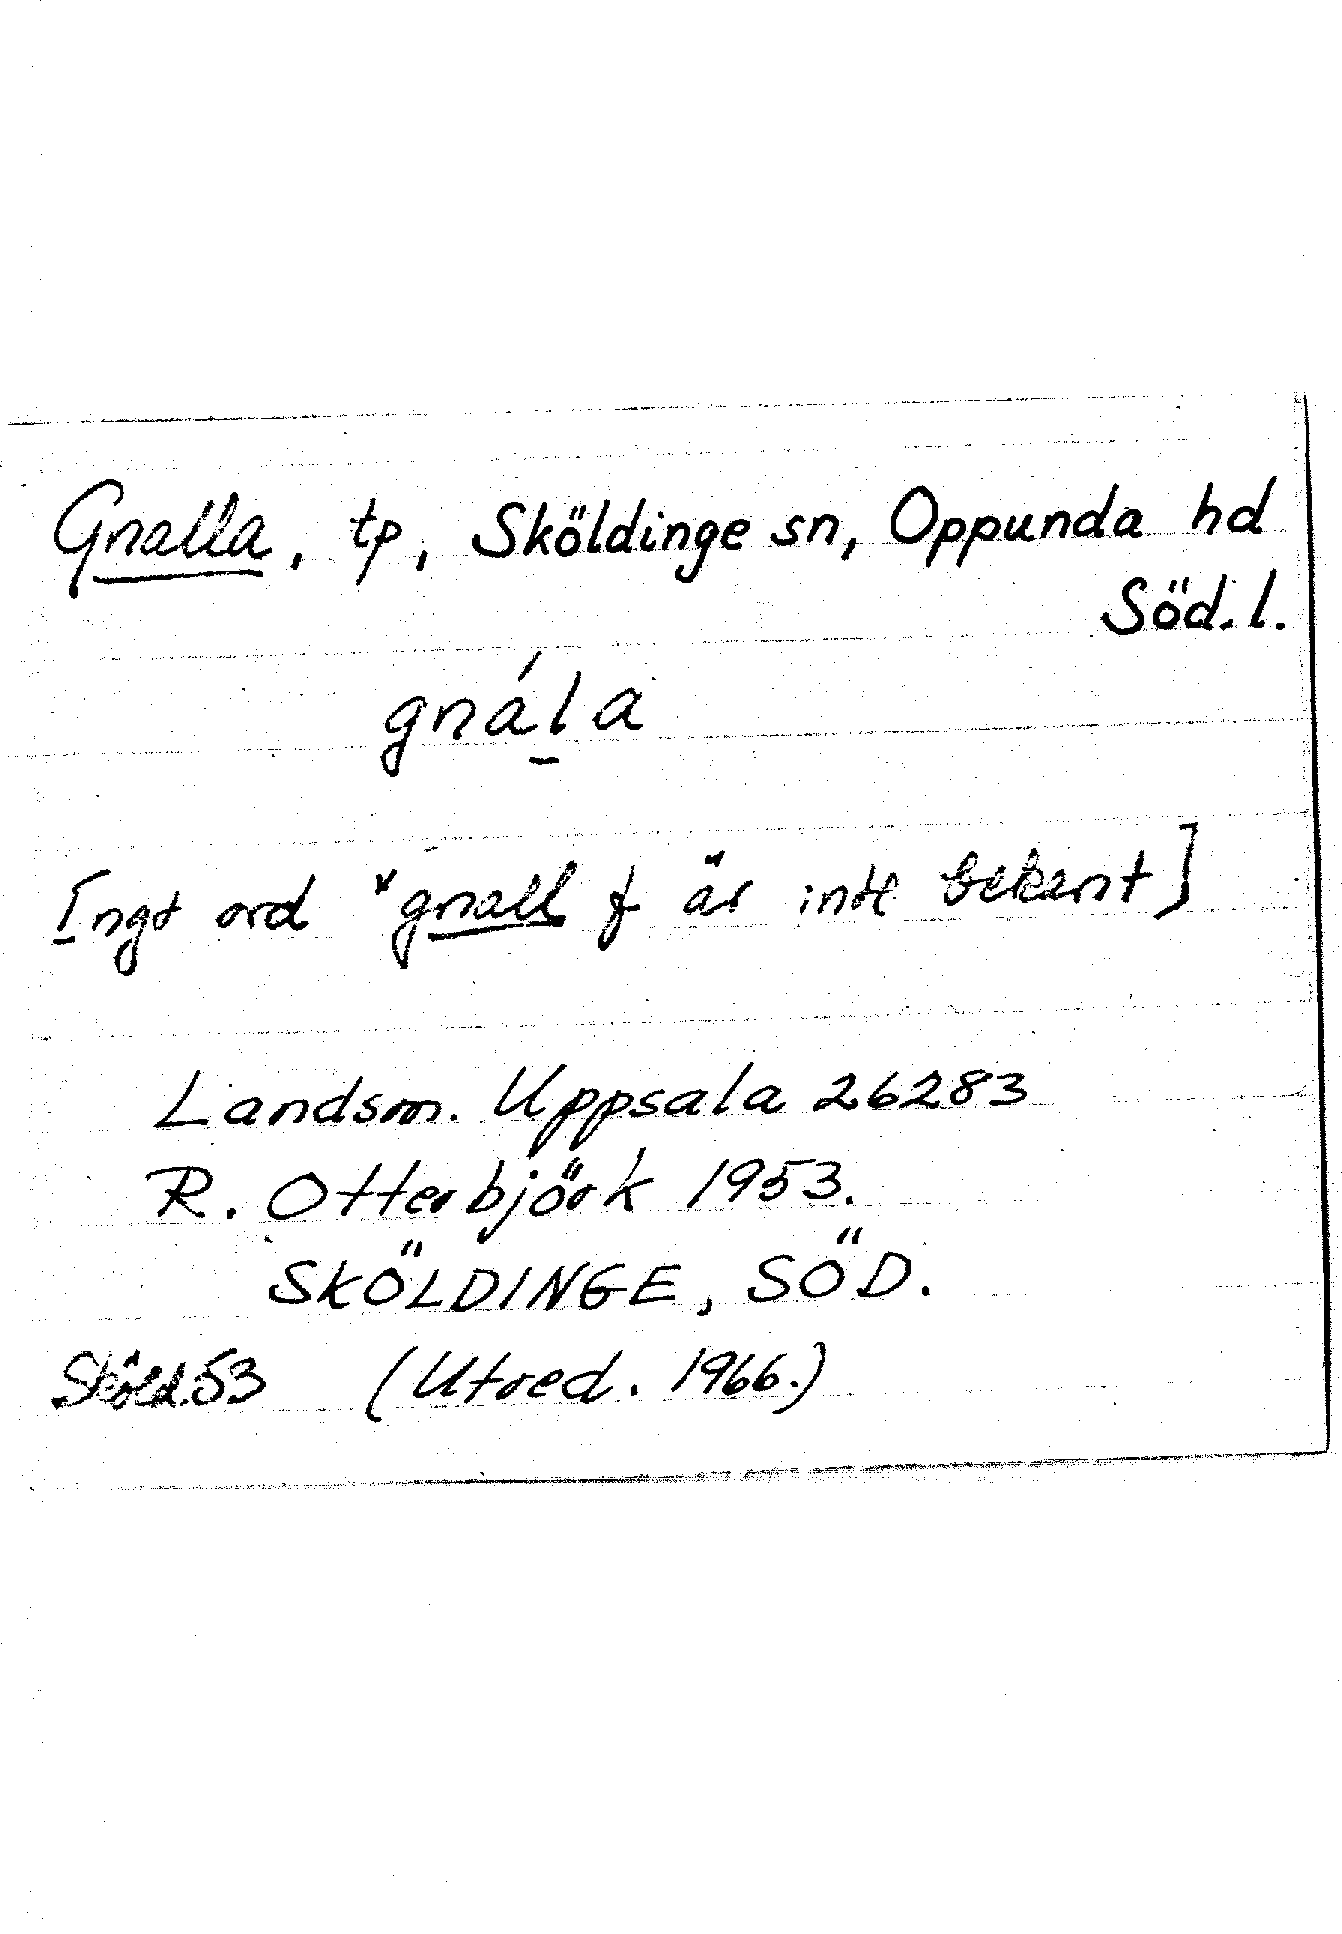 Gnalla, tp, Sköldinge sn, Oppunda hd
Söd. l.
gnáḻa
[ngt ord *gnall f är inte bekant]
Landsm. Uppsala 26283
R. Otterbjörk 1953.
SKÖLDINGE, SÖD.
Sköld.53 (Utred. 1966.)